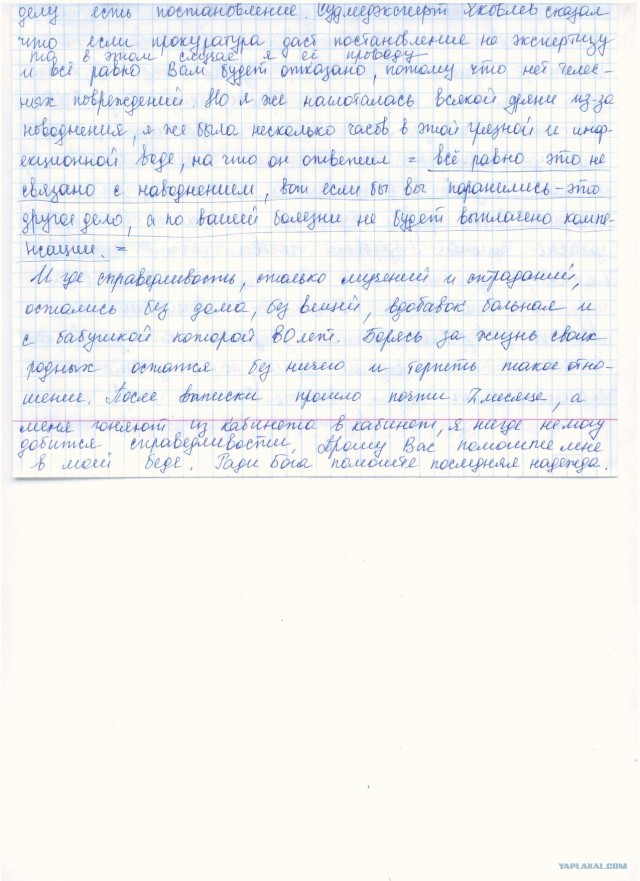 делу есть постановление. Судмедэксперт Яковлев сказал
что если прокуратура даст постановление на экспертизу
то в этом случае я её проведу
и всё равно Вам будет отказано, потому что нет телес-
ных повреждений. Но я же наглоталась всякой дряни из-за
новоднения, я же была несколько часов в этой грязной и инф-
екционной воде, на что он ответил = всё равно это не
связано с наводнением, вот если бы вы поранились - это
другое дело, а по вашей болезни не будет выплачено компе-
нсации. =
И где справедливость, столько мучений и страданий,
остались без дома, без вещей, вдобавок больная и
с бабушкой которой 80 лет. Борясь за жизнь своих
родных остатся без ничего и терпеть такое отно-
шение. После выписки прошло почти 2 месяца, а
меня гоняют из кабинета в кабинет, я нигде не могу
добится справедливости. Прошу Вас помогите мне
в моей беде. Ради Бога помогите последняя надежда.
YAPLAKAL.COM